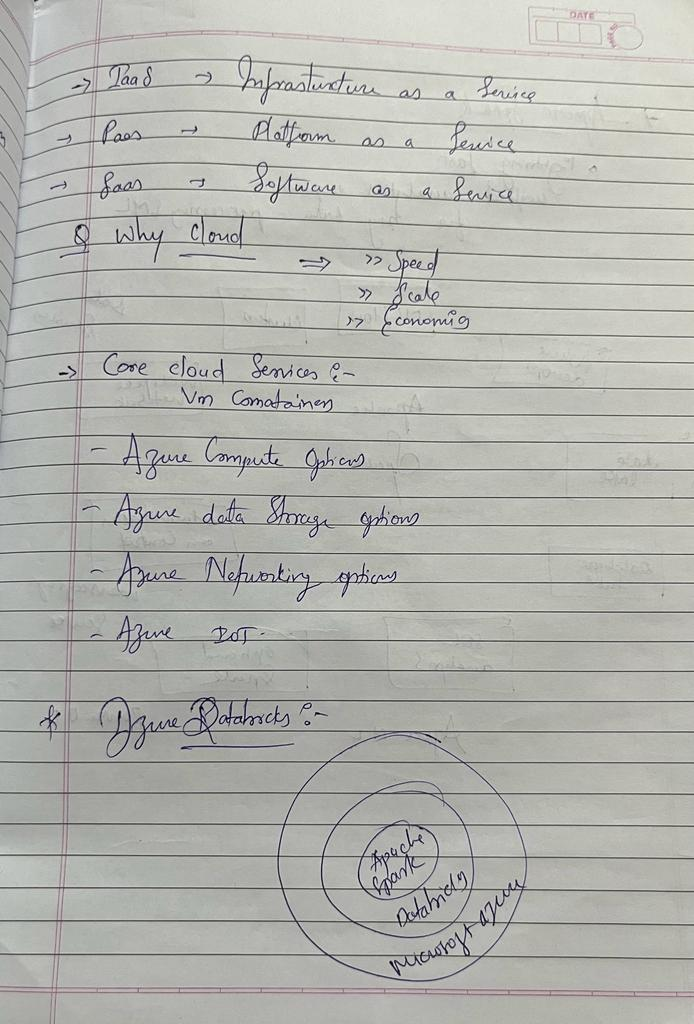 DATE
→ IaaS → Infrasturture as a Service
→ Paas → Platform as a Service
→ Saas → Software as a Service
Q Why Cloud
⇒ >> Speed
>> Scale
>> Economics
→ Core cloud Services :-
Vm Comatainers
- Azure Compute Options
- Azure data Storage options
- Azure Networking options
- Azure IOT.
* Azure Databricks :-
Apache
Spark
Databricks
Microsoft azure